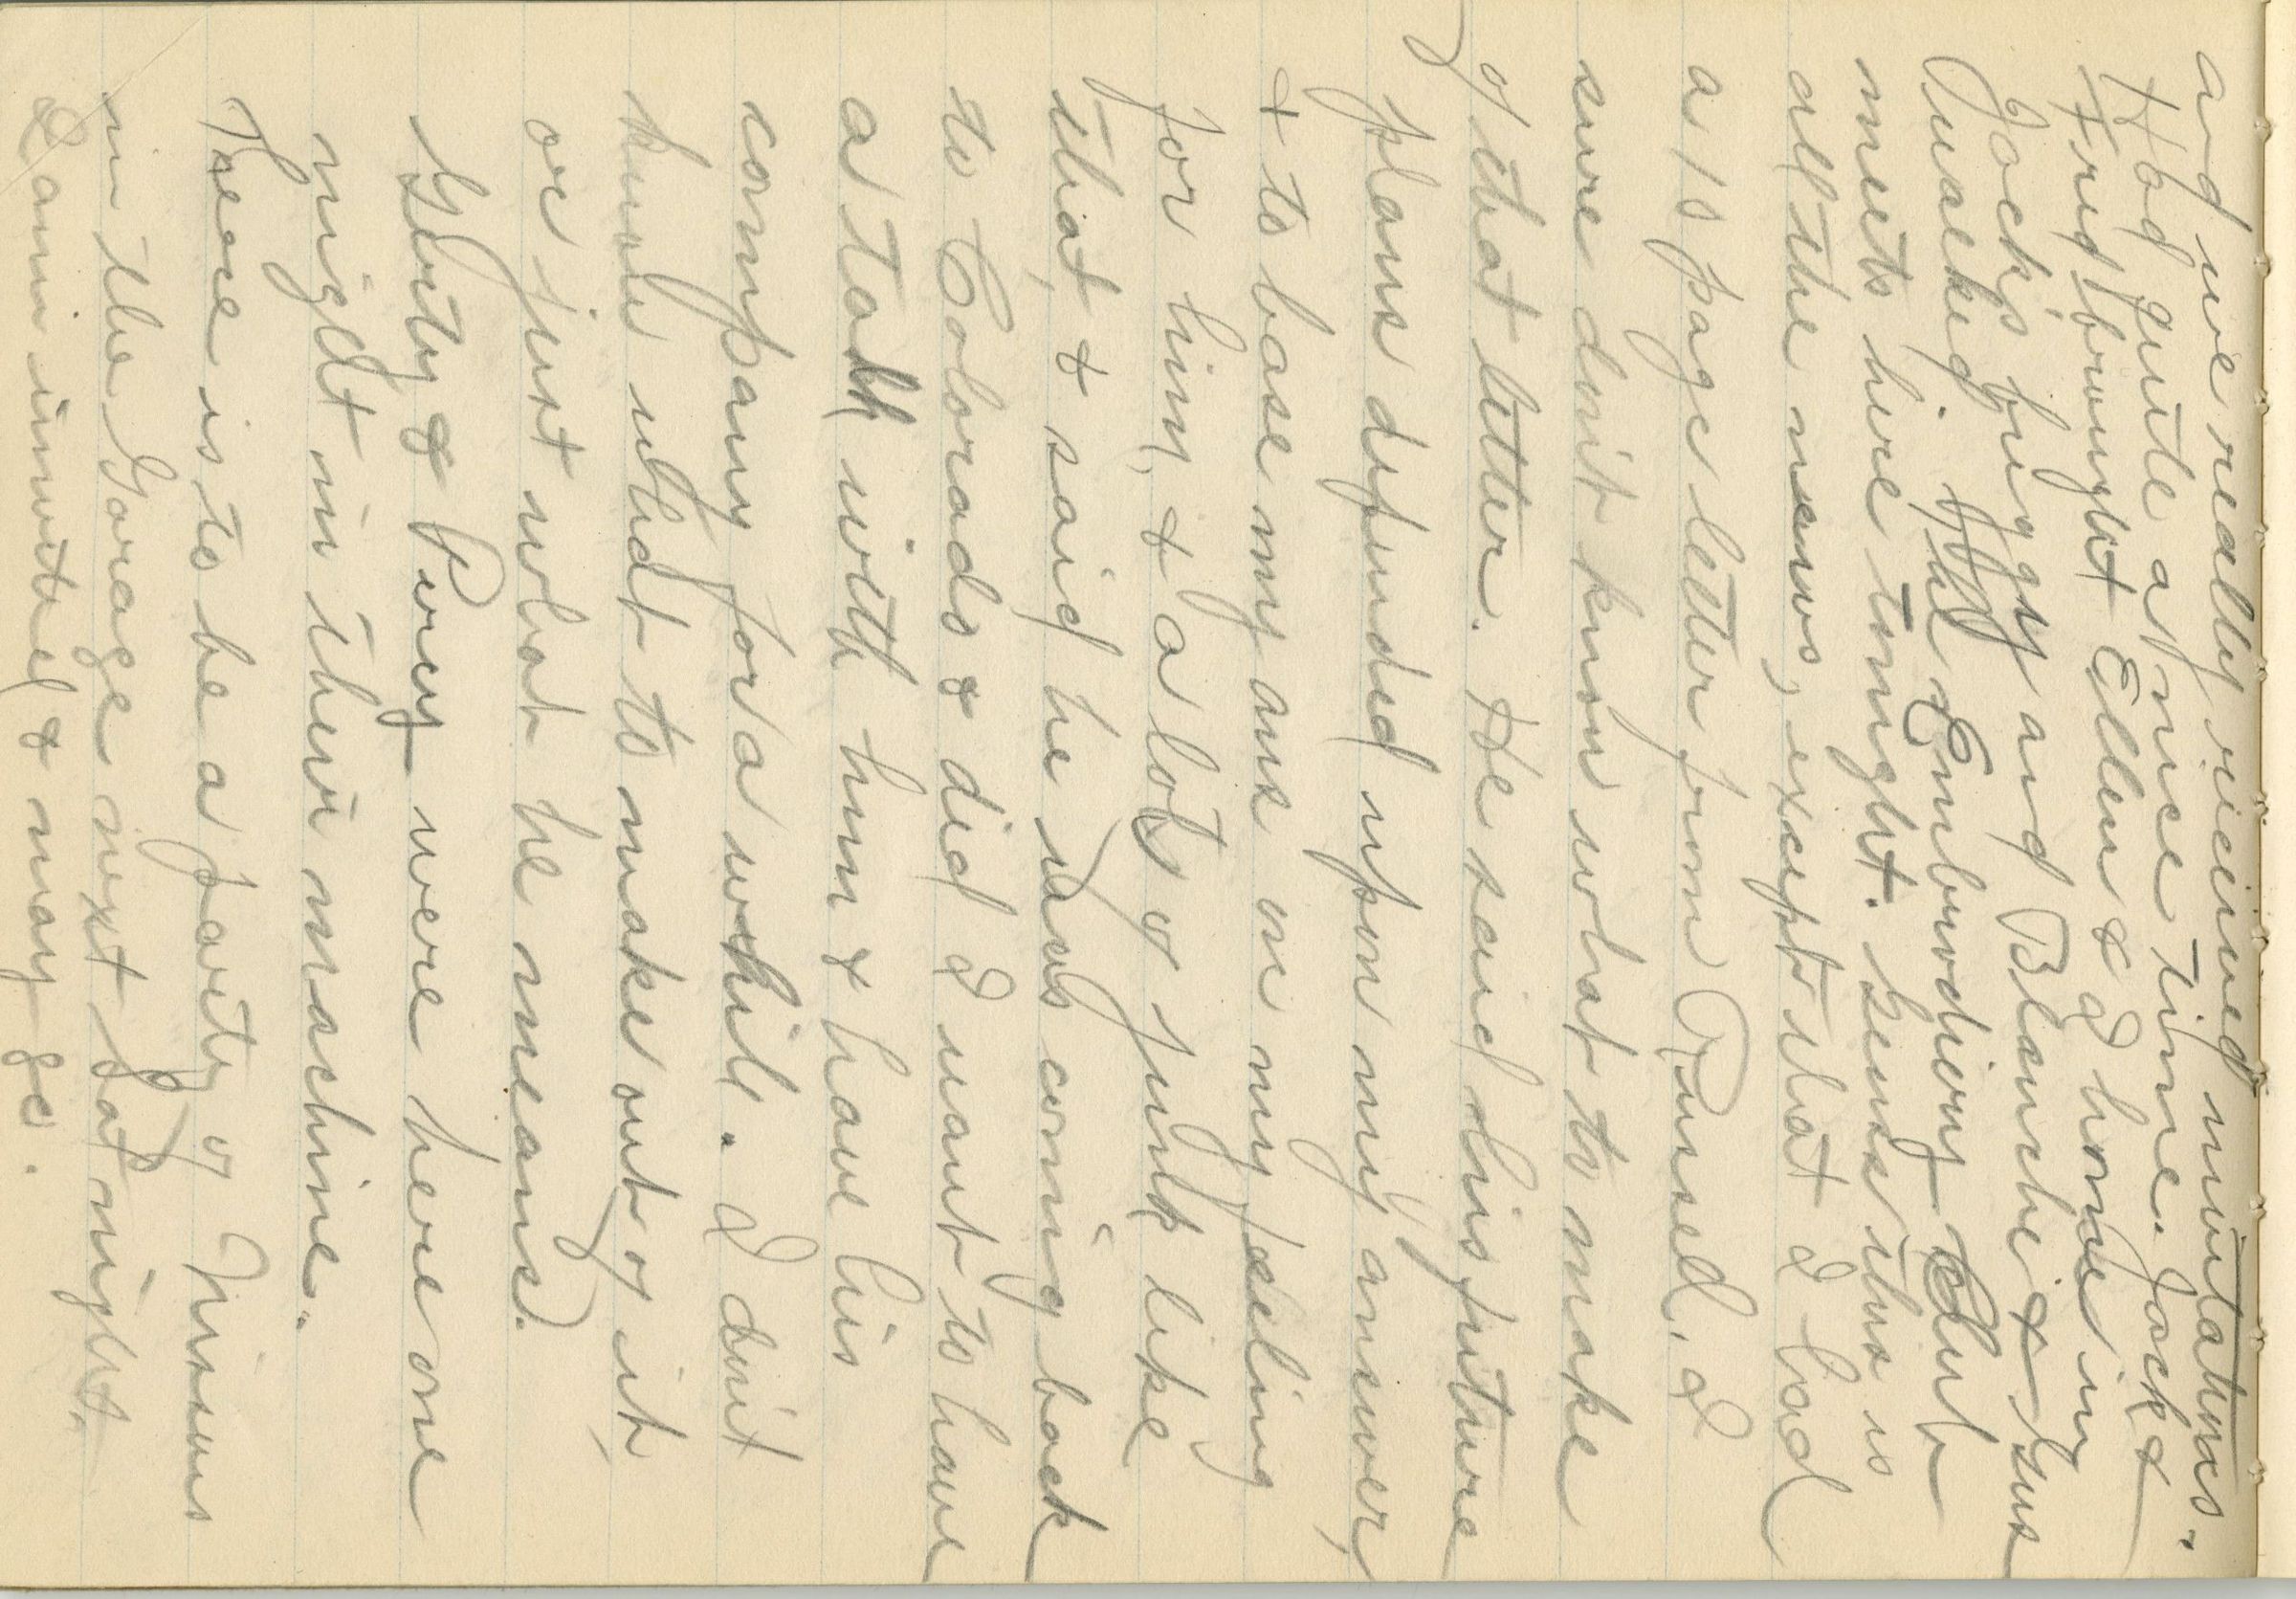 and we really received invitations.
Had quite a nice time. Jack &
Fred brought Ellen & I home in
Jack's buggy and Blanche & Gus
walked. The Embroidery Club
meets here tonight. Guess this is
all the news, except that I had
a 15 page letter from Russel. I
sure don't know what to make
of that letter. He said his future
plans depended upon my answer,
& to base my ans on my feeling
for him, & a lots of junk like
that, & said he was coming back
to Colorado & did I want to have
a talk with him & have his
company for a while. I don't
know what to make out of it,
or just what he means.
Gerty & Percy were here one
night in their machine.
There is to be a party of
in the Garage next Sat night.
I am invited & may go.